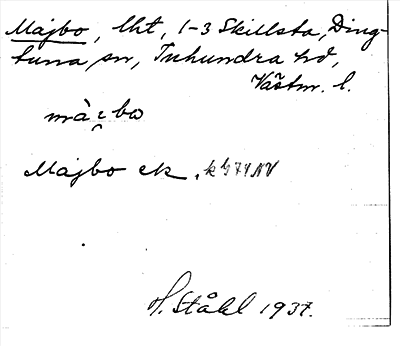 Majbo, lht, 1-3 Skillsta, Ding-
tuna sn, Tuhundra hd,
Västm. l.
Majbo ek.
H. Ståhl 1937.